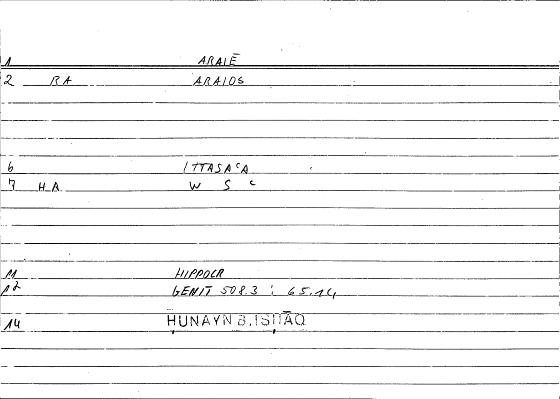 1 ARAIĒ
2 RA ARAIOS
6 ITTASAʿA
7 HA W S ʿ
11 HIPPOCR
12 GENIT 508.3 ; 65.14
14 ḤUNAYN B. ISḤĀQ